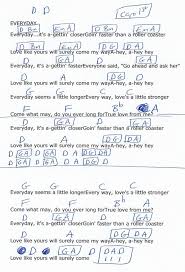 D D Capo 1st
EVERYDAY
D Bm Em A D Bm Em A
Everyday, it's a-gettin' closerGoin' faster than a roller coaster
D Bm Em A DG DA
Love like yours will surely come my wayA-hey, a-hey hey
D GA D GA
Everyday, it's a-gettin' fasterEveryone said, "Go ahead and ask her"
D GA DG D
Love like yours will surely come my wayA-hey, a-hey hey
G G C C
Everyday seems a little longerEvery way, love's a little stronger
F F Bb A
Come what may, do you ever long forTrue love from me?
D GA D GA
Everyday, it's a-gettin' closerGoin' faster than a roller coaster
D GA DG DA
Love like yours will surely come my wayA-hey, a-hey hey
D GA D GA D GA DG DA
G G C C
Everyday seems a little longerEvery way, love's a little stronger
F F Bb A
Come what may, do you ever long forTrue love from me?
D GA D GA
Everyday, it's a-gettin' closerGoin' faster than a roller coaster
D GA DG DG
Love like yours will surely come my wayA-hey, a-hey hey
D GA D DAD
Love like yours will surely come my way